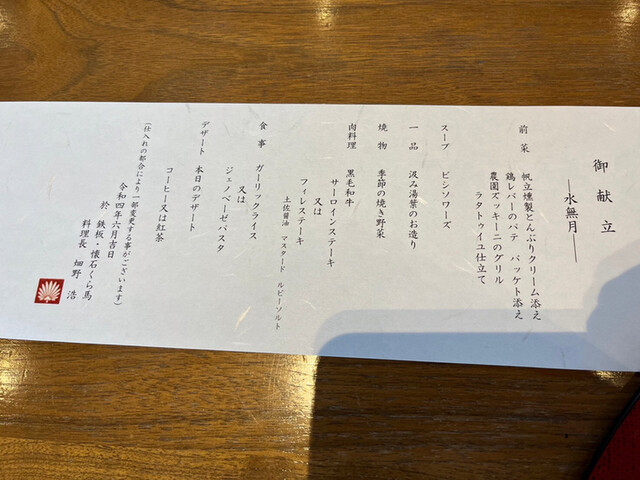 御献立
―水無月―
前菜 帆立燻製とんぶりクリーム添え
鶏レバーのパテ バッケト添え
農園ズッキーニのグリル
ラタトゥイユ仕立て
スープ ビシソワーズ
一品 汲み湯葉のお造り
焼物 季節の焼き野菜
肉料理 黒毛和牛
サーロインステーキ
又は
フィレステーキ
土佐醤油 マスタード ルビーソルト
食事 ガーリックライス
又は
ジェノベーゼパスタ
デザート 本日のデザート
コーヒー又は紅茶
(仕入れの都合により一部変更する事がございます)
令和四年六月吉日
於 鉄板・懐石くら馬
料理長 畑野 浩